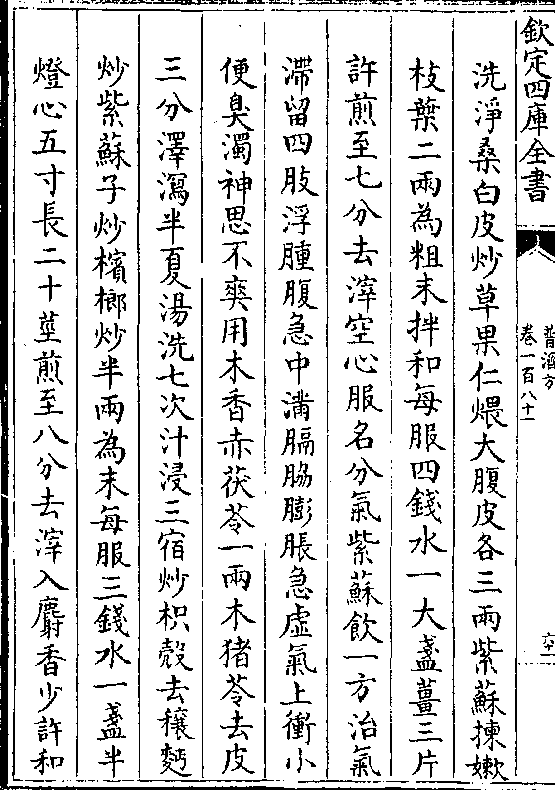 欽定四庫全書
普濟方
卷一百八十一
洗淨桑白皮炒草果仁煨大腹皮各三兩紫蘇揀嫰
枝葉二兩為粗末拌和每服四錢水一大盞薑三片
許煎至七分去滓空心服名分氣紫蘇飲一方治氣
滯留四肢浮腫腹急中滿膈脇膨脹急虛氣上衝小
便臭濁神思不爽用木香赤茯苓一兩木猪苓去皮
三分澤瀉半夏湯洗七次汁浸三宿炒枳殼去穰麪
炒紫蘇子炒檳榔炒半兩為末每服三錢水一盞半
燈心五寸長二十莖煎至八分去滓入麝香少許和